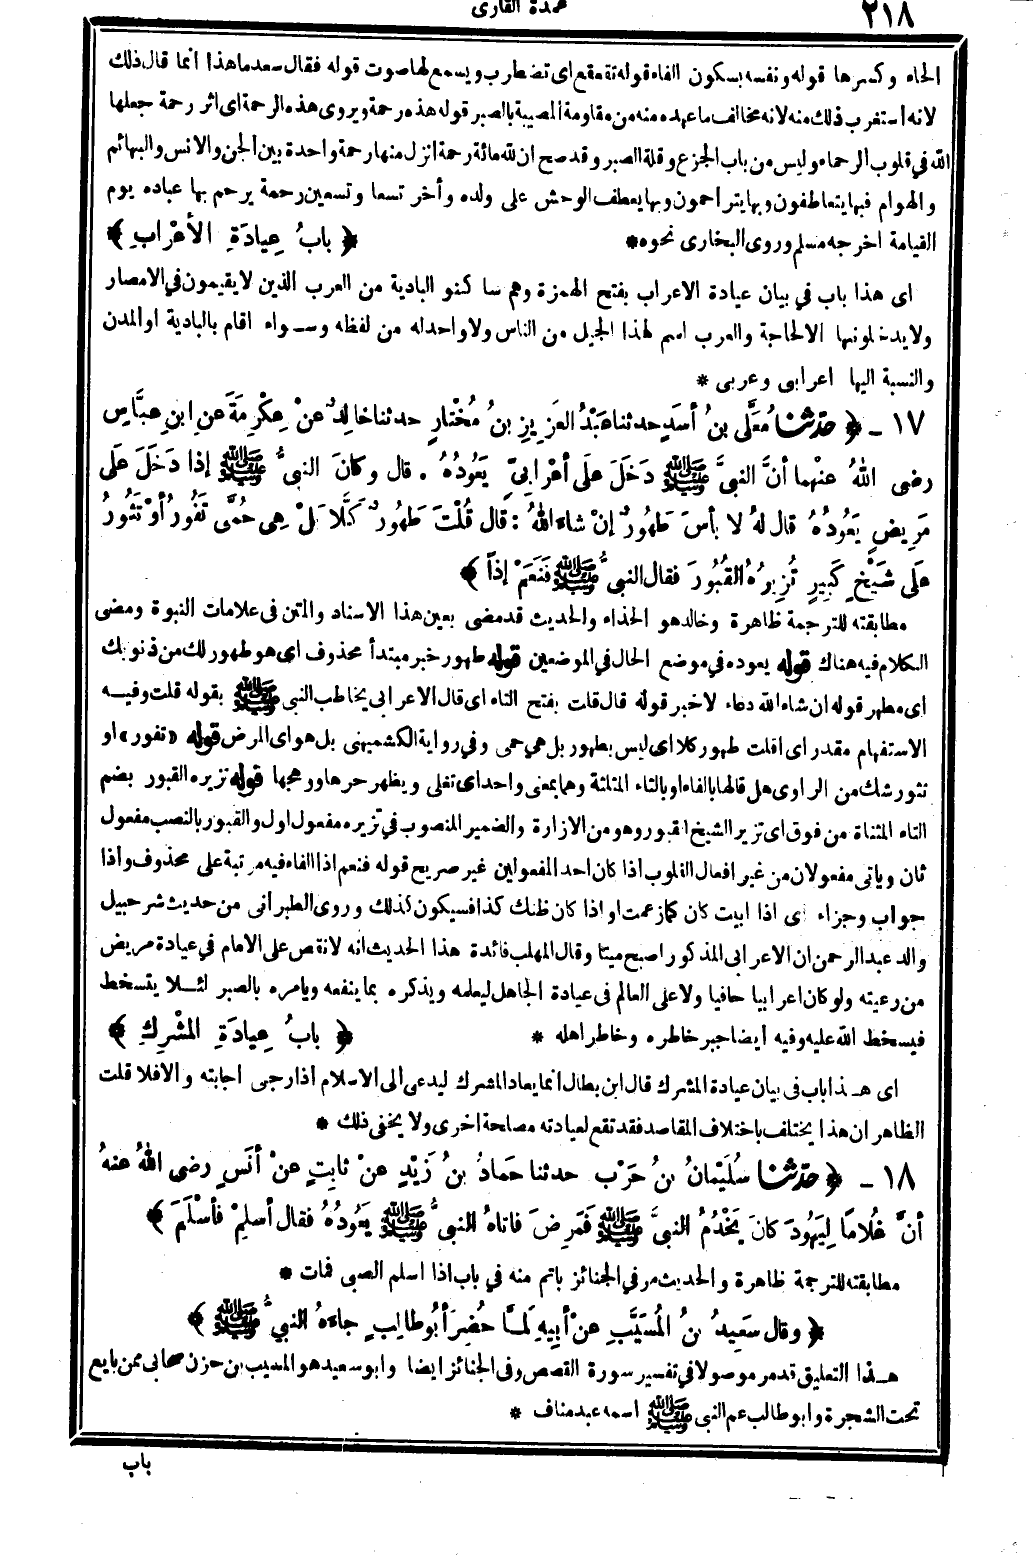 ٢١٨
عمدة القارى
الحاء وكسرها قوله ونفسه بسكون الفاء قوله تقعقع اى تضطرب ويسمع لها صوت قوله فقال سعد ما هذا انما قال ذلك
لانه استغرب ذلك منه لانه مخالف ما عهده منه من مقاومة المصيبة بالصبر قوله هذه رحمة ويروى هذه الرحمة اى اثر رحمة جعلها
الله فى قلوب الرحماء وليس من باب الجزع وقلة الصبر وقد صح ان لله مائة رحمة انزل منها رحمة واحدة بين الجن والانس والبهائم
والهوام فبها يتعاطفون وبها يتراحمون وبها يعطف الوحش على ولده وأخر تسعا وتسعين رحمة يرحم بها عباده يوم
القيامة اخرجه مسلم وروى البخارى نحوه * ﴿ بابُ عِيادَةِ الأعْرابِ ﴾
اى هذا باب في بيان عيادة الاعراب بفتح الهمزة وهم ساكنو البادية من العرب الذين لا يقيمون فى الامصار
ولا يدخلونها الا لحاجة والعرب اسم لهذا الجيل من الناس ولا واحد له من لفظه وسواء اقام بالبادية او المدن
والنسبة اليها اعرابى وعربى *
١٧ - ﴿ حدثنا مُعَلَّى بنُ أسَدٍ حدثنا عَبْدُ العَزِيزِ بنُ مُخْتارٍ حدثنا خالِدٌ عنْ عِكْرِمَةَ عنِ ابنِ عبَّاسٍ
رضى اللهُ عنْهما أنَّ النبىَّ ﷺ دَخَلَ عَلَى أعْرابِىٍّ يَعُودُهُ . قال وكانَ النبىُّ ﷺ إذا دَخَلَ عَلَى
مَرِيضٍ يَعُودُهُ قال لهُ لا بأسَ طَهُورٌ إنْ شاءَ اللهُ : قال قُلْتَ طَهُورٌ كَلَّا بَلْ هِىَ حُمَّى تَفُورُ أوْ تَثُورُ
عَلَى شَيْخٍ كَبِيرٍ تُزِيرُهُ القُبُورَ فقال النبىُّ ﷺ فَنَعَمْ إذاً ﴾
مطابقته للترجمة ظاهرة وخالد هو الحذاء والحديث قد مضى بعين هذا الاسناد والمتن فى علامات النبوة ومضى
الكلام فيه هناك قوله يعوده فى موضع الحال فى الموضعين قوله طهور خبر مبتدأ محذوف اى هو طهور لك من ذنوبك
اى مطهر قوله ان شاء الله دعاء لا خبر قوله قال قلت بفتح التاء اى قال الاعرابى يخاطب النبى ﷺ بقوله قلت وفيه
الاستفهام مقدر اى اقلت طهور كلا اى ليس بطهور بل هى حمى وفى رواية الكشميهنى بل هو اى المرض قوله «تفور» او
تثور شك من الراوى هل قالها بالفاء او بالثاء المثلثة وهما بمعنى واحد اى تغلى ويظهر حرها ووهجها قوله تزيره القبور بضم
التاء المثناة من فوق اى تزير الشيخ القبور وهو من الازارة والضمير المنصوب فى تزيره مفعول اول والقبور بالنصب مفعول
ثان وياتى مفعولان من غير افعال القلوب اذا كان احد المفعولين غير صريح قوله فنعم اذا الفاء فيه مرتبة على محذوف واذا
جواب وجزاء اى اذا ابيت كان كما زعمت او اذا كان ظنك كذا فسيكون كذلك وروى الطبرانى من حديث شرحبيل
والد عبد الرحمن ان الاعرابى المذكور اصبح ميتا وقال المهلب فائدة هذا الحديث انه لا نقص على الامام فى عيادة مريض
من رعيته ولو كان اعرابيا جافيا ولا على العالم فى عيادة الجاهل ليعلمه ويذكره بما ينفعه ويامره بالصبر لئلا يتسخط
فيسخط الله عليه وفيه أيضا جبر خاطره وخاطر اهله * ﴿ بابُ عِيادَةِ المُشْرِكِ ﴾
اى هذا باب فى بيان عيادة المشرك قال ابن بطال انما يعاد المشرك ليدعى الى الاسلام اذا رجى اجابته والا فلا قلت
الظاهر ان هذا يختلف باختلاف المقاصد فقد تقع لعيادته مصلحة اخرى ولا يخفى ذلك *
١٨ - ﴿ حدثنا سُلَيْمانُ بنُ حَرْب حدثنا حَمادُ بنُ زَيْدٍ عنْ ثابِتٍ عنْ أنَسٍ رضى اللهُ عنهُ
أنَّ غُلامًا لِيَهُودَ كانَ يَخْدُمُ النبىَّ ﷺ فَمَرِضَ فاتاهُ النبىُّ ﷺ يَعُودُهُ فقال أسلِمْ فأسْلَمَ ﴾
مطابقته للترجمة ظاهرة والحديث مر فى الجنائز باتم منه فى باب اذا اسلم الصبى فمات *
﴿ وقال سَعِيدُ بنُ المُسَيَّبِ عنْ أبِيهِ لَمَّا حُضِرَ أبُو طالِبٍ جاءَهُ النبىُّ ﷺ ﴾
هذا التعليق قد مر موصولا فى تفسير سورة القصص وفى الجنائز ايضا وابو سعيد هو المسيب بن حزن صحابى ممن بايع
تحت الشجرة وابو طالب عم النبى ﷺ اسمه عبد مناف *
باب